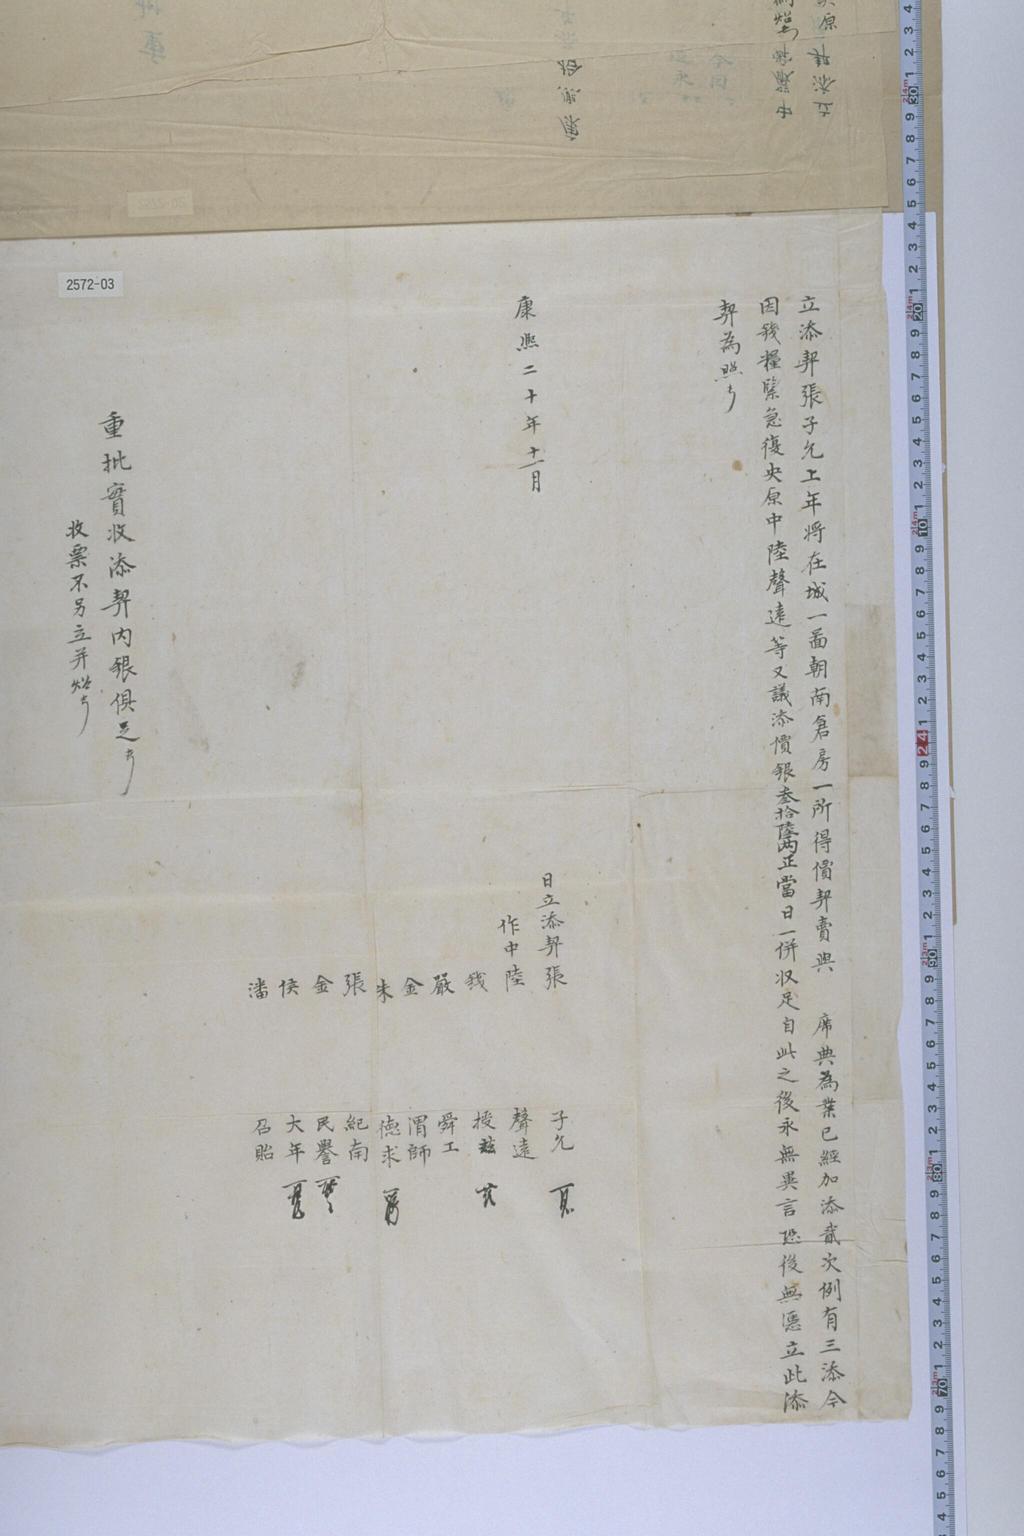 立添契張子允上年將在城一啚朝南倉房一所得價契賣與　席典為業已經加添貳次例有三添今
因錢糧緊急復央原中陸聲遠等又議添價銀叁拾陸兩正當日一併收足自此之後永無異言恐後無憑立此添
契為照
康熙二十年十一月
日立添契張子允
作中陸聲遠
錢授茲
嚴舜工
金渭師
朱德求
張紀南
金民譽
侯大年
潘召貽
重批實收添契內銀俱足
收票不另立并照
2572-03